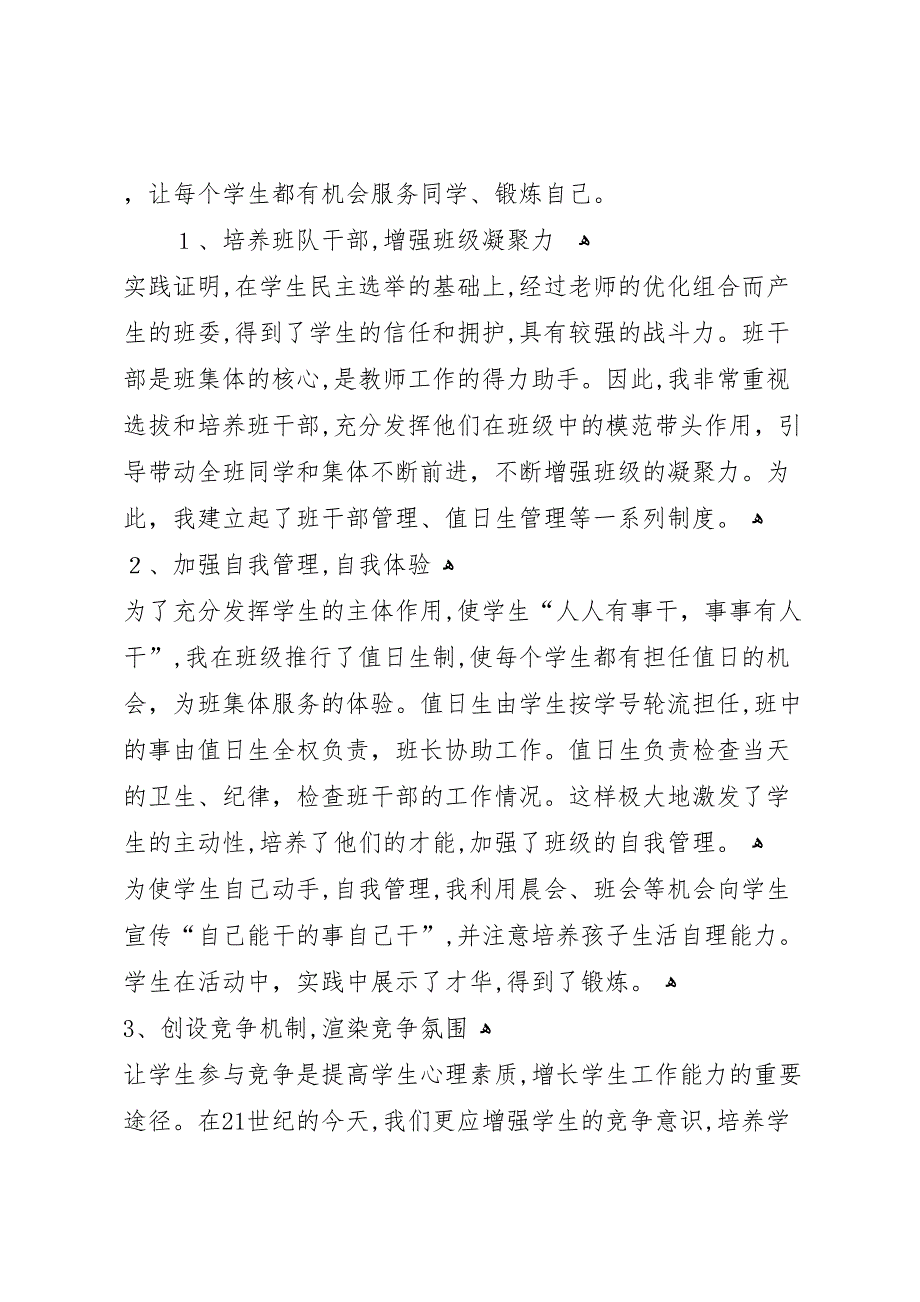 ，让每个学生都有机会服务同学、锻炼自己。
１、培养班队干部,增强班级凝聚力 ﻫ
实践证明,在学生民主选举的基础上,经过老师的优化组合而产
生的班委,得到了学生的信任和拥护,具有较强的战斗力。班干
部是班集体的核心,是教师工作的得力助手。因此,我非常重视
选拔和培养班干部,充分发挥他们在班级中的模范带头作用，引
导带动全班同学和集体不断前进，不断增强班级的凝聚力。为
此，我建立起了班干部管理、值日生管理等一系列制度。ﻫ
２、加强自我管理,自我体验ﻫ
为了充分发挥学生的主体作用,使学生“人人有事干，事事有人
干”,我在班级推行了值日生制,使每个学生都有担任值日的机
会，为班集体服务的体验。值日生由学生按学号轮流担任,班中
的事由值日生全权负责，班长协助工作。值日生负责检查当天
的卫生、纪律，检查班干部的工作情况。这样极大地激发了学
生的主动性,培养了他们的才能,加强了班级的自我管理。ﻫ
为使学生自己动手,自我管理,我利用晨会、班会等机会向学生
宣传“自己能干的事自己干”,并注意培养孩子生活自理能力。
学生在活动中，实践中展示了才华,得到了锻炼。ﻫ
3、创设竞争机制,渲染竞争氛围ﻫ
让学生参与竞争是提高学生心理素质,增长学生工作能力的重要
途径。在21世纪的今天,我们更应增强学生的竞争意识,培养学